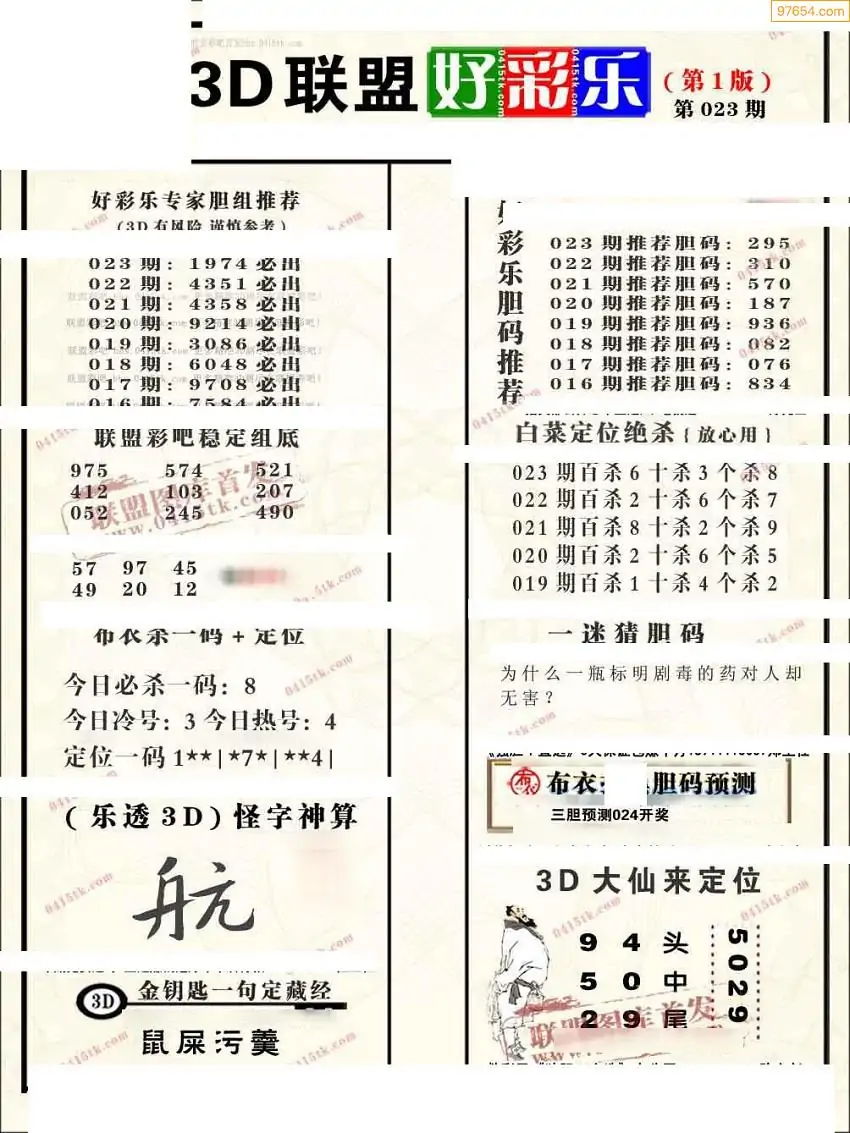 97654.com
3D联盟 好彩乐
(第1版)
第023期
好彩乐专家胆组推荐
(3D有风险 谨慎参考)
023期: 1974必出
022期: 4351必出
021期: 4358必出
020期: 9214必出
019期: 3086必出
018期: 6048必出
017期: 9708必出
016期: 7584必出
联盟彩吧稳定组底
975 574 521
412 103 207
052 245 490
联盟图库首发
www.0415tk.com
57 97 45
49 20 12
布衣杀一码+定位
今日必杀一码: 8
今日冷号: 3 今日热号: 4
定位一码 1**|*7*|**4|
(乐透3D)怪字神算
航
3D 金钥匙一句定藏经
鼠屎污羹
彩乐胆码推荐
023期推荐胆码: 295
022期推荐胆码: 310
021期推荐胆码: 570
020期推荐胆码: 187
019期推荐胆码: 936
018期推荐胆码: 082
017期推荐胆码: 076
016期推荐胆码: 834
白菜定位绝杀{放心用}
023期百杀6十杀3个杀8
022期百杀2十杀6个杀7
021期百杀8十杀2个杀9
020期百杀2十杀6个杀5
019期百杀1十杀4个杀2
一迷猜胆码
为什么一瓶标明剧毒的药对人却
无害?
布衣 胆码预测
三胆预测024开奖
3D大仙来定位
9 4 头
5 0 中
2 9 尾
5029
联盟图库首发
0415tk.com